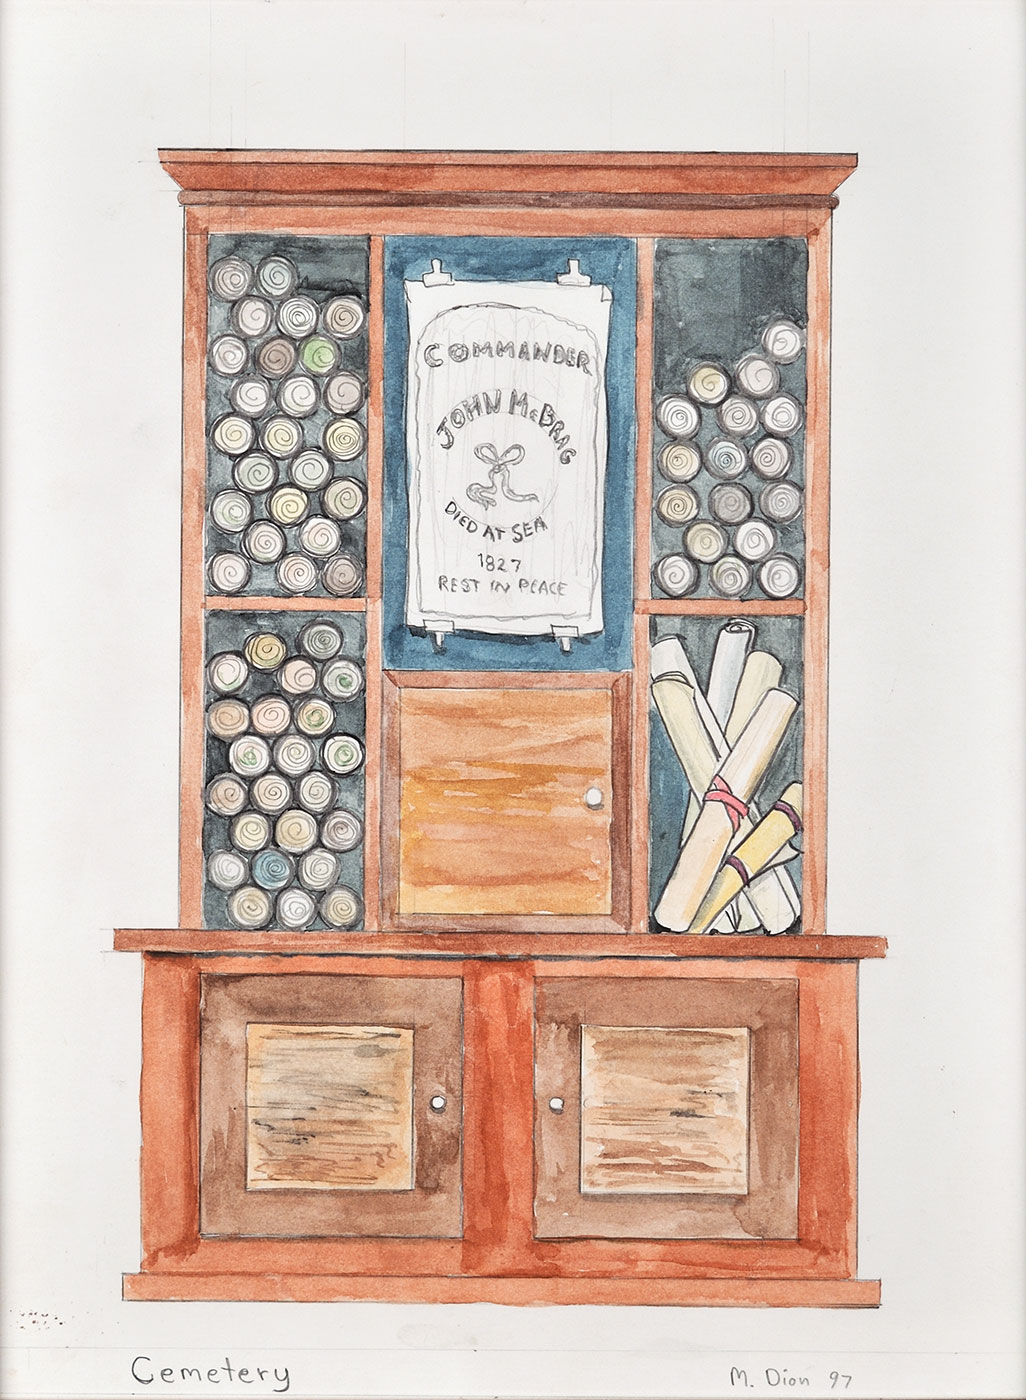 COMMANDER
JOHN McBRAG
DIED AT SEA
1827
REST IN PEACE
Cemetery
M. Dion 97